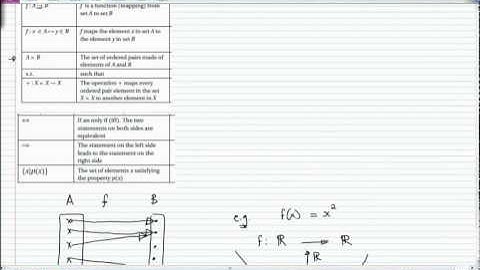 f : A → B
f is a function (mapping) from
set A to set B
f : x ∈ A ↦ y ∈ B
f maps the element x in set A to
the element y in set B
A × B
The set of ordered pairs made of
elements of A and B
s.t.
such that
+ : X × X → X
The operation + maps every
ordered pair element in the set
X × X to another element in X
⇔
If an only if (iff). The two
statements on both sides are
equivalent
⇒
The statement on the left side
leads to the statement on the
right side
{x|p(x)}
The set of elements x satisfying
the property p(x)
A f B
e.g f(x) = x²
f: ℝ → ℝ
ℝ